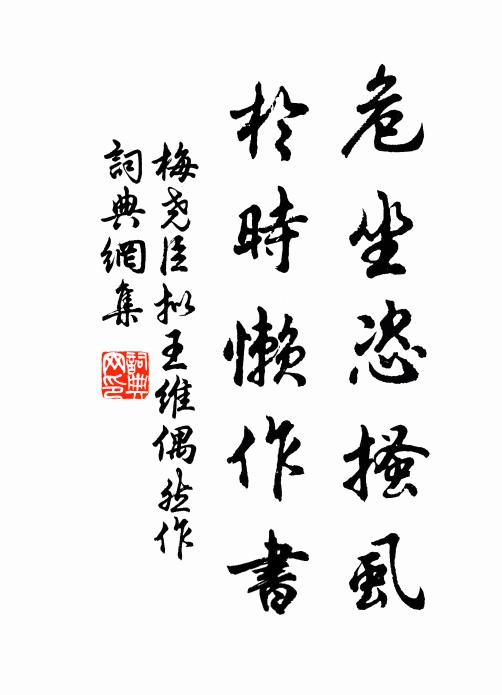 危坐恣搔虱
於時懶作書
梅尧臣拟王维偶然作
詞典網集
詞典网印